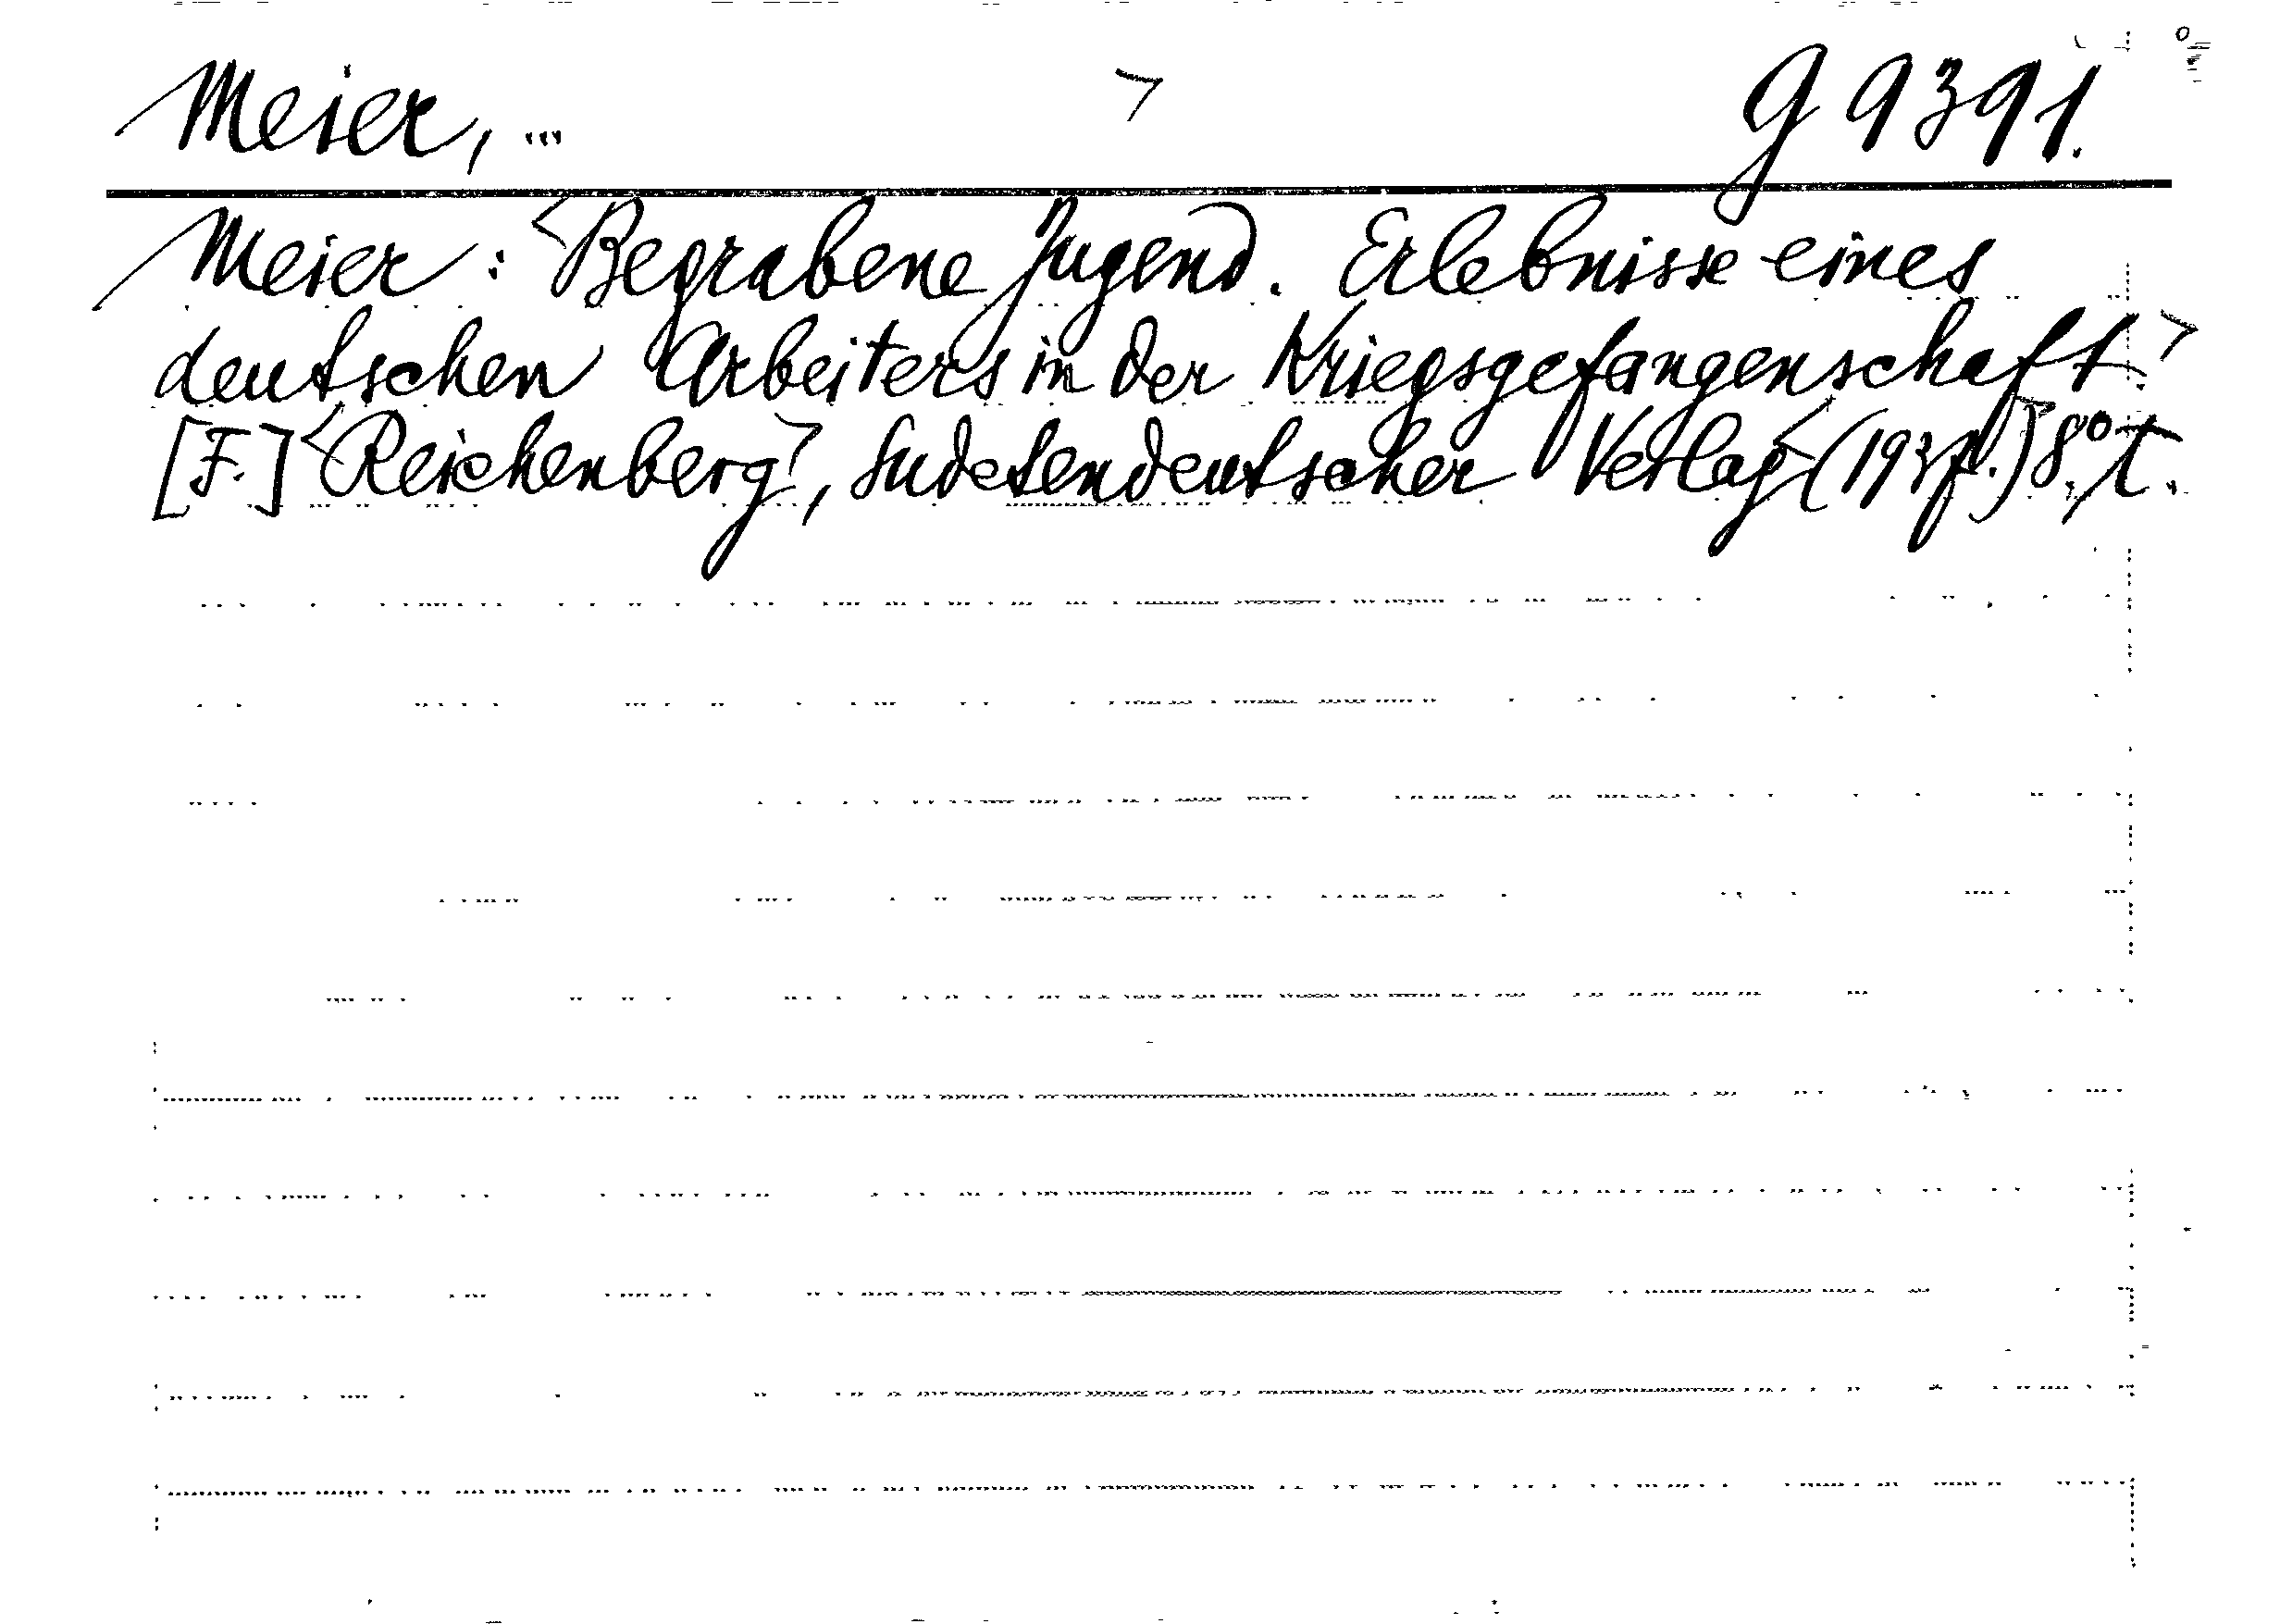 Meier, ... > G 9391.
Meier: <Begrabene Jugend. Erlebnisse eines
deutschen Arbeiters in der Kriegsgefangenschaft.>
[F.] <Reichenberg>, Sudetendeutscher Verlag <(193 .)> 8°.